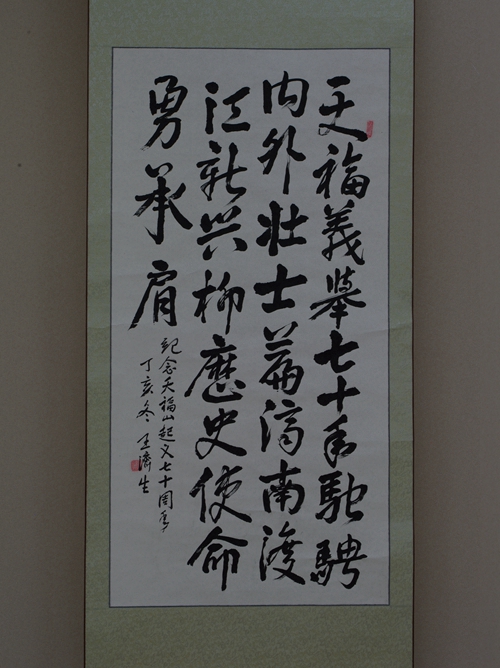 天福義舉七十年馳騁
内外壮士篇济南渡
江新兴柳歷史使命
勇承肩
紀念天福山起义七十周年
丁亥冬 王濟生